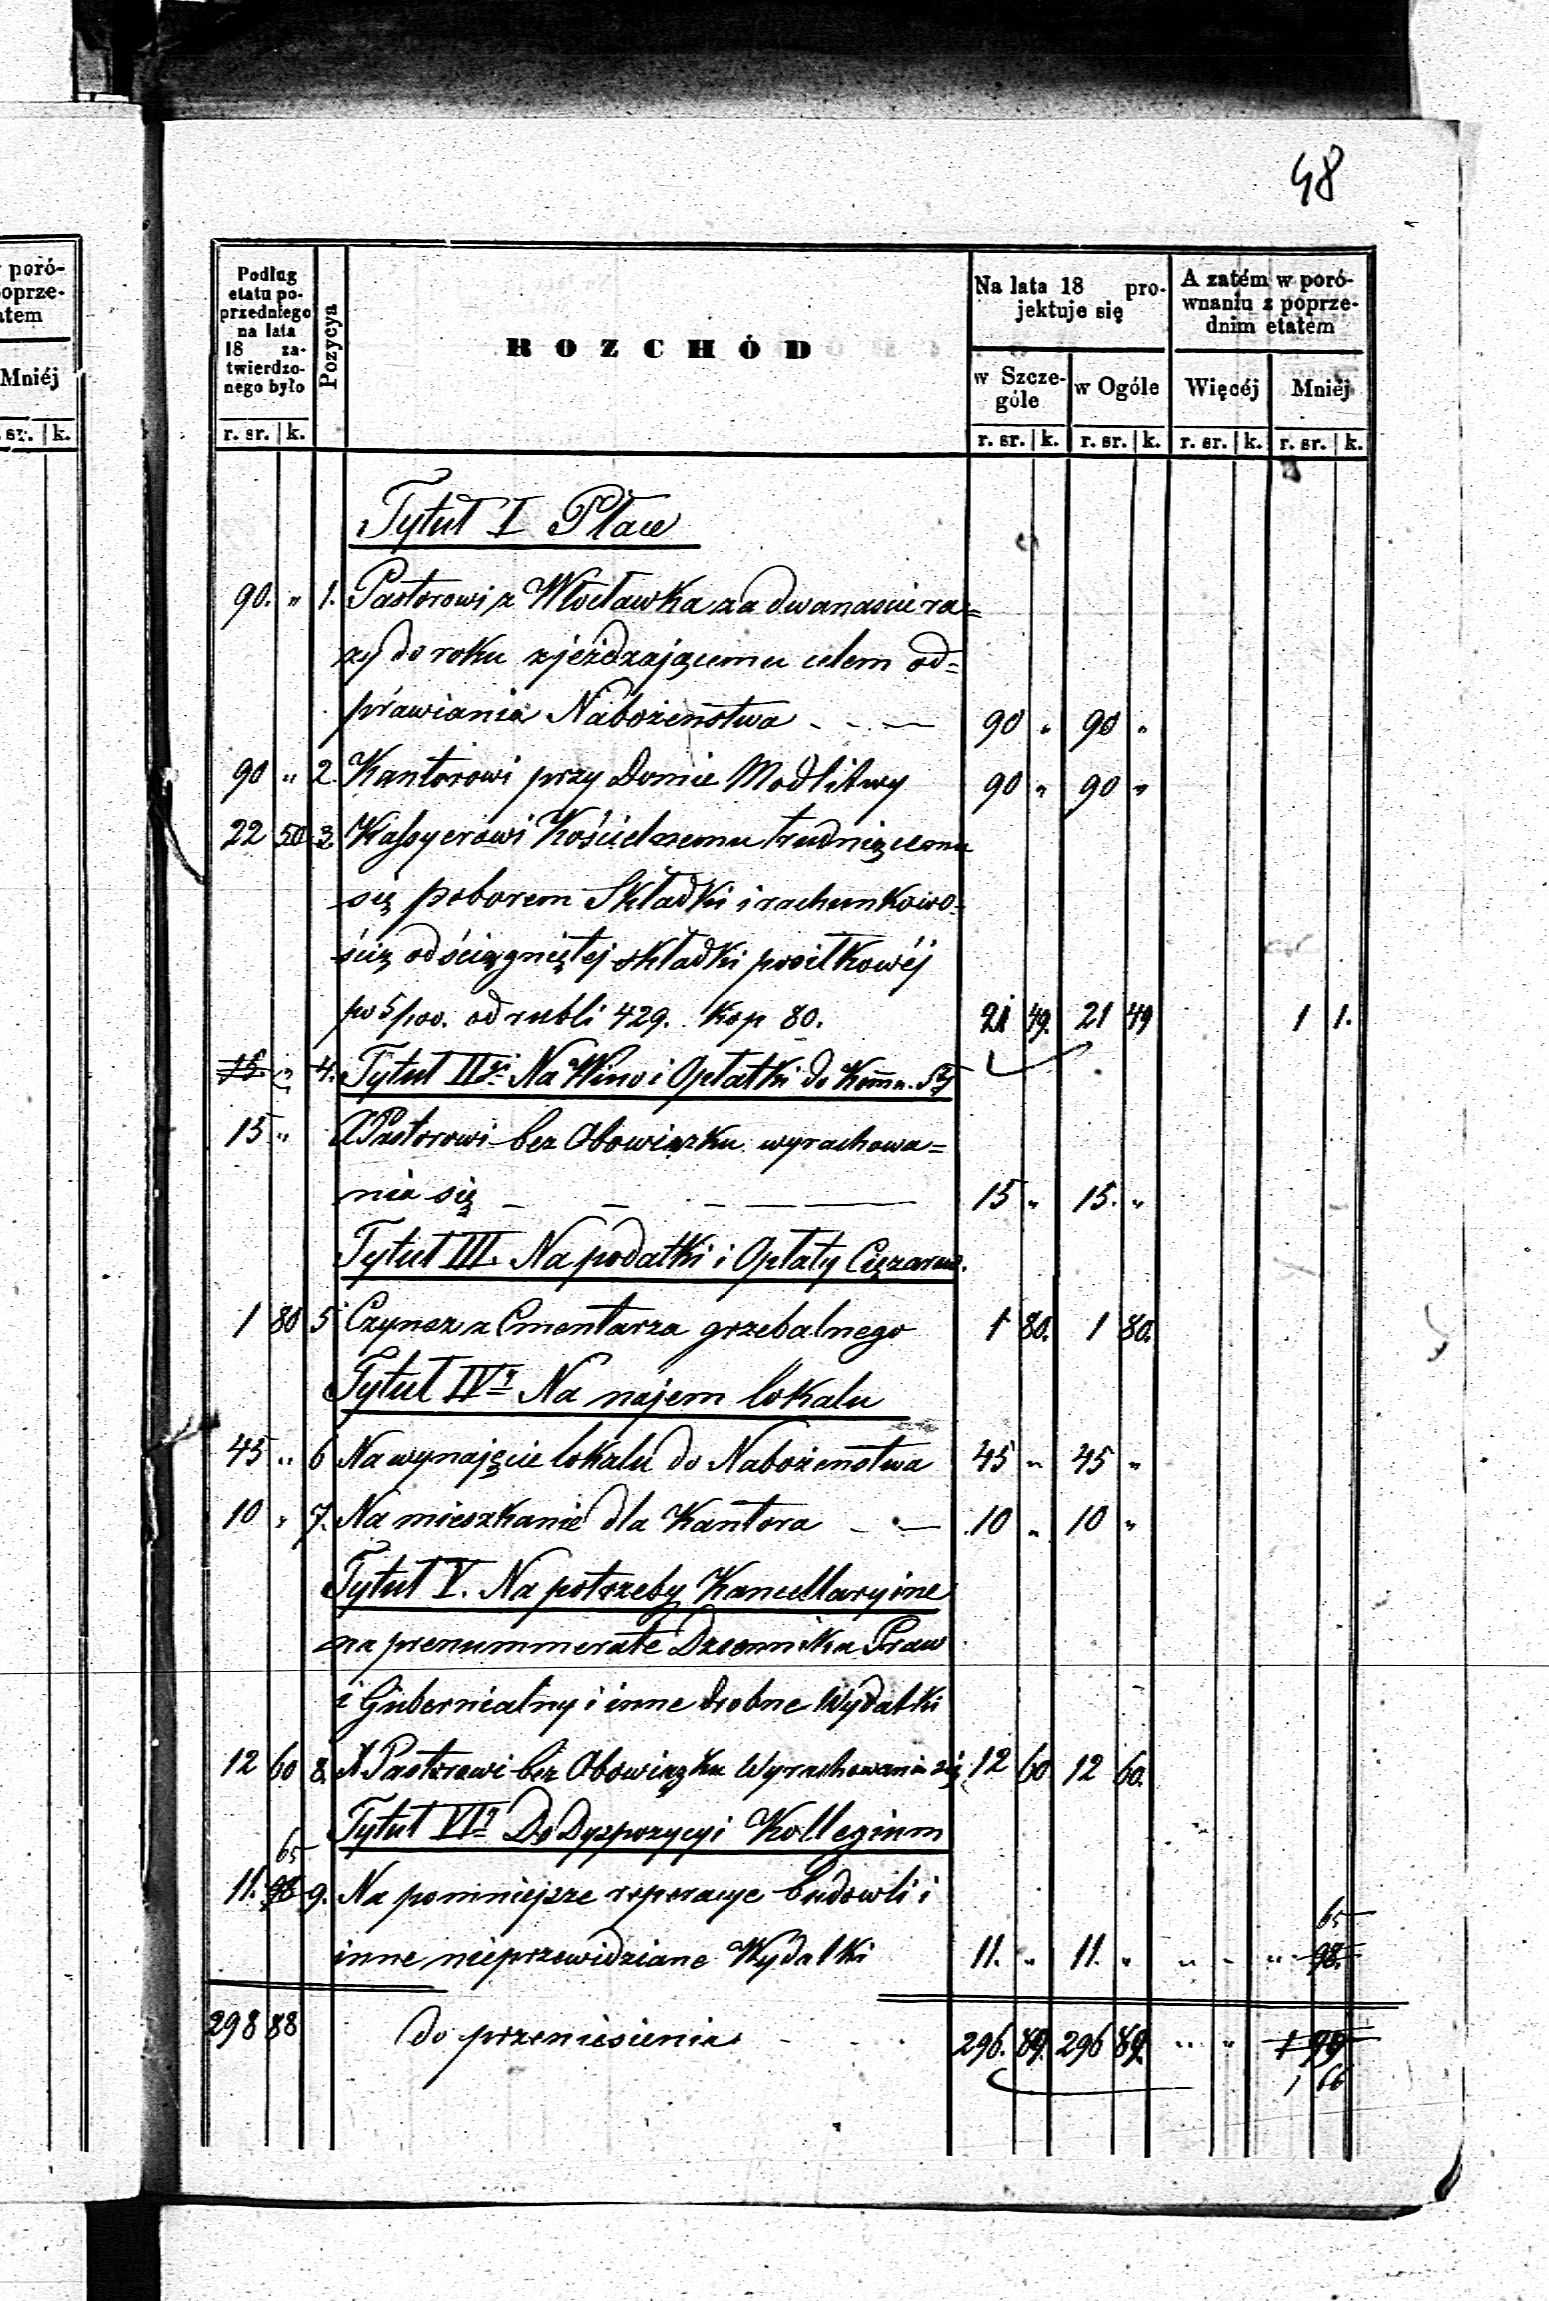 48
poró-
oprze-
atem
Mniéj
sr. k.
Podług etatu po-przedniego na lata 18 za-twierdzo-nego było
Pozycya
ROZCHÓD
Na lata 18 pro-jektuje się
A zatém w poró-wnaniu z poprze-dnim etatem
w Szcze-góle w Ogóle Więcéj Mniéj
r. sr. k. r. sr. k. r. sr. k. r. sr. k. r. sr. k.
Tytuł I Płace
90. " 1. Pastorowi z Włocławka za dwanaście ra=
zy do roku zjeżdzającemu celem od=
prawiania Nabożeństwa - - — 90 " 90 "
90 " 2. Kantorowi przy Domie Modlitwy 90 " 90 "
22 50 3. Kassyerowi Kościelnemu trudniącemu
się poborem Składki i rachunkowo-
ścią od ściągniętej składki posiłkowéj
po 5/100. od rubli 429. Kop 80. 21 49. 21 49 1 1.
15. 4. Tytuł II Na Wino i Opłatki do Komm. Stj
15 " A Pastorowi bez Obowiązku wyrachowa=
nia się — — - — — 15 " 15. "
Tytuł III. Na podatki i Opłaty Ciężarow.
1 80 5 Czynsz z Cmentarza grzebalnego 1 80. 1 80.
Tytuł IV Na najem lokalu
45 " 6 Na wynajęcie lokalu do Nabożeństwa 45 " 45 "
10 " 7. Na mieszkanie dla Kantora - — 10 " 10 "
Tytuł V. Na potrzeby Kancellaryine
na prenummerate Dziennika Praw
i Gubernialny i inne drobne Wydatki
12 60 8. A Pastorowi bez Obowiązku Wyrachowania się 12 60 12 60.
Tytuł VI Do Dyspozycyi Kollegium
65
11. 98 9. Na pomniejsze reperacye budowli i
65
inne nieprzewidziane Wydatki 11. " 11. " " " " 98.
298 88 do przeniesienia 296. 89. 296 89. " " 1 99
1 66